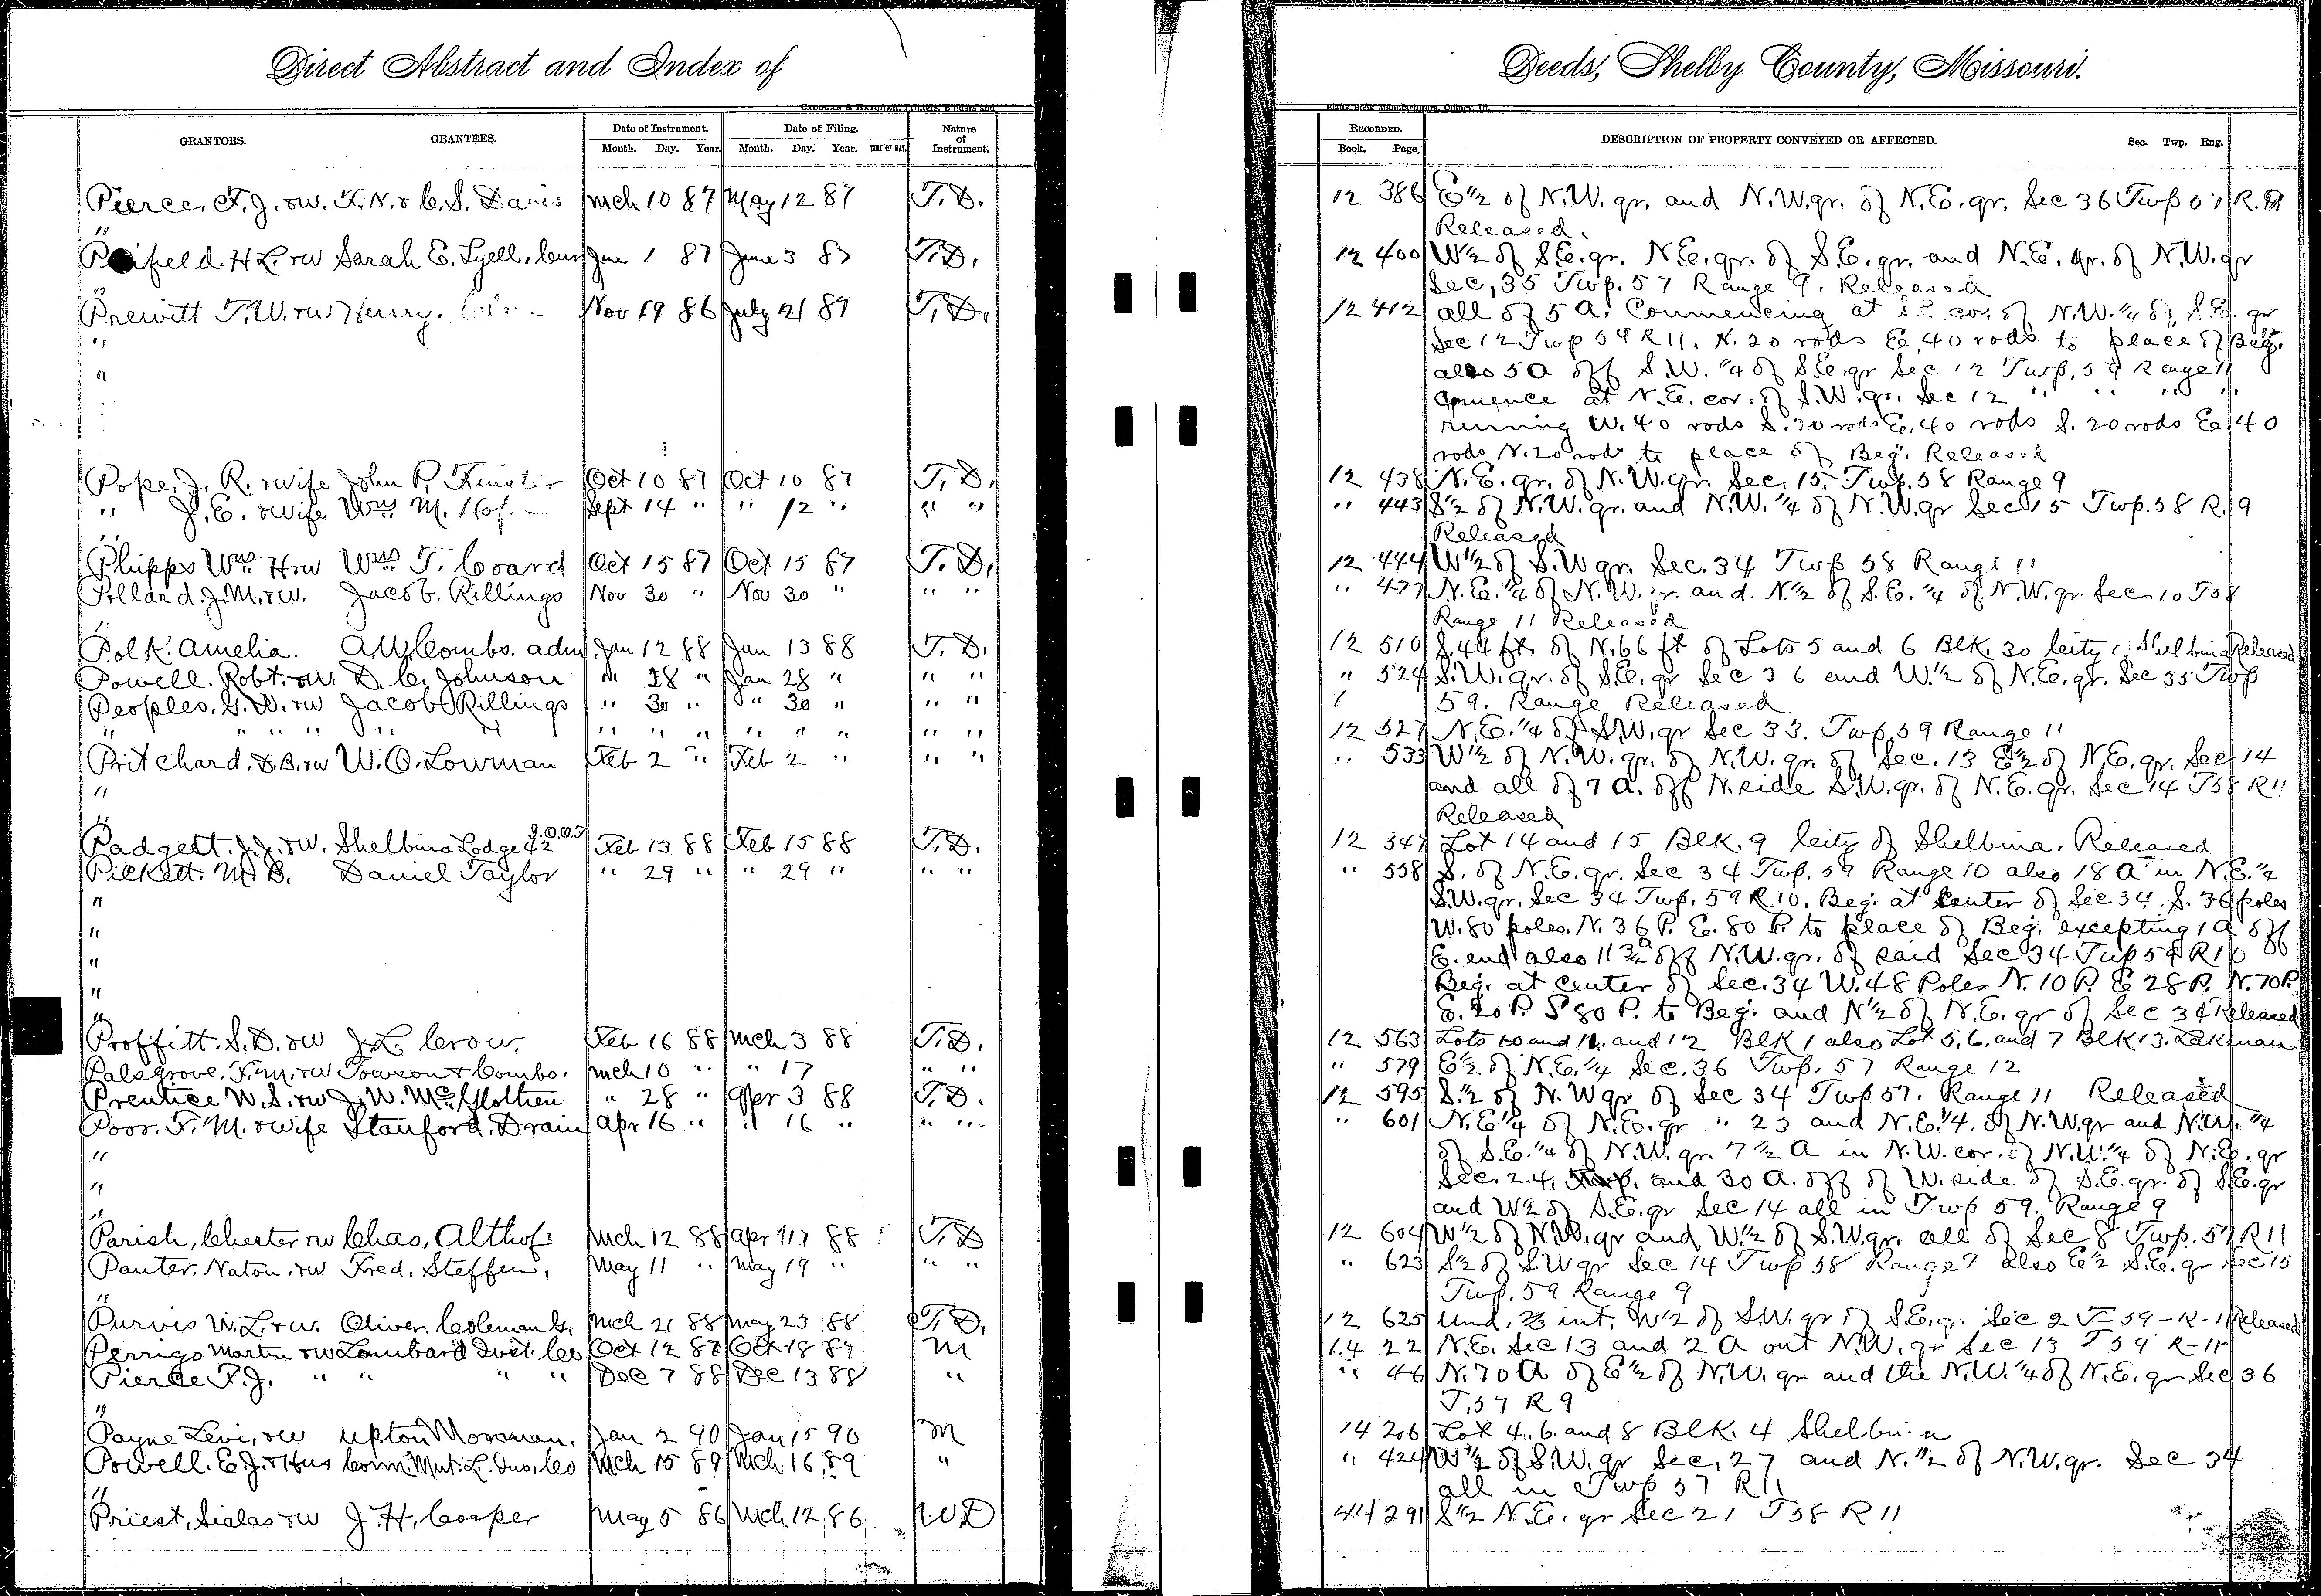 Direct Abstract and Index of
Deeds, Shelby County, Missouri.
CADOGAN & HATCHER, Printers, Binders and
Blank Book Manufacturers, Quincy, Ill.
GRANTORS. GRANTEES. Date of Instrument. Month. Day. Year. Date of Filing. Month. Day. Year. TIME OF DAY. Nature of Instrument.
RECORDED. Book. Page. DESCRIPTION OF PROPERTY CONVEYED OR AFFECTED. Sec. Twp. Rng.
Pierce, F. J. & w. F. N. & C. S. Davis Mch 10 87 May 12 87 T. D. 12 386 E 1/2 of N.W. qr. and N.W. qr. of N.E. qr. Sec 36 Twp 57 R. 9
" Released.
H L. & w Sarah E. Lyell, June 1 87 June 3 87 T. D. 12 400 W 1/2 of S.E. qr. N.E. qr. of S.E. qr. and N.E. qr. of N.W. qr
" Sec, 35 Twp. 57 Range 9. Released
Prewitt T. W. & w Henry. Nov 19 86 July 21 87 T. D. 12 412 all of 5 A. Commencing at S.E cor. of N.W. 1/4 of S.E. qr
" Sec 12 Twp 59 R 11. N. 20 rods E. 40 rods to place of Beg.
" also 5 A off S.W. 1/4 of S.E. qr Sec 12 Twp. 59 Range 11
Comence at N.E. cor. of S.W. qr. Sec 12 " " " "
running W. 40 rods S. rods E. 40 rods S. 20 rods E 40
rods N. 20 rods to place of Beg. Released
Pope, J. R. & wife John P. Oct 10 87 Oct 10 87 T. D. 12 438 N. E. qr. of N. W. qr. Sec. 15, Twp. 58 Range 9
" J. E. & wife Wm M. Sept 14 " " 12 " " " " 443 S 1/2 of N. W. qr. and N.W. 1/4 of N.W. qr Sec 15 Twp. 58 R. 9
" Released
Phipps Wm H & w Wm T. Coard Oct 15 87 Oct 15 87 T. D. 12 444 W 1/2 of S.W qr. Sec. 34 Twp 58 Range 11
Pollard. J. M. & w. Jacob. Rillings Nov 30 " Nov 30 " " " " 477 N. E. 1/4 of N. W. qr. and. N. 1/2 of S. E. 1/4 of N. W. qr. Sec 10 T58
" Range 11 Released
Polk. Amelia. A.W. Combs. adm Jan 12 88 Jan 13 88 T. D. 12 510 S. 44 ft. of N. 66 ft of Lots 5 and 6 Blk. 30 City Shelbina Released
Powell. Robt. & w. D. C. Johnson " 28 " Jan 28 " " " " 524 S. W. qr. of S. E. qr Sec 26 and W. 1/2 of N. E. qr. Sec 35 Twp
Peoples. G. W. & w Jacob Rillings " 30 " " 30 " " " 59. Range Released
" " " " " " " " " " " " " 12 527 N. E. 1/4 of S.W. qr Sec 33. Twp 59 Range 11
Pritchard. D. B. & w W. O. Lowman Feb 2 " Feb 2 " " " " 533 W 1/2 of N. W. qr. of N. W. qr. of Sec. 13 E 1/2 of N. E. qr. Sec 14
" and all of 7 A. off N. side S. W. qr. of N. E. qr. Sec 14 T58 R 11
" Released
Padgett. J. J. & w. Shelbina Lodge 42 I.O.O.F Feb 13 88 Feb 15 88 T. D. 12 547 Lot 14 and 15 Blk. 9 City of Shelbina. Released
Pickett. M. B. Daniel Taylor " 29 " " 29 " " " " 558 S. of N. E. qr. Sec 34 Twp. 59 Range 10 also 18 A in N. E. 1/4
" S.W. qr. Sec 34 Twp. 59 R 10. Beg. at Center of Sec 34. S. 36 poles
" W. 80 poles. N. 36 P. E. 80 P. to place of Beg. excepting 1 A off
" E. end also 11 3/4 A off N. W. qr. of said Sec 34 Twp 59 R 10
" Beg. at center of Sec. 34 W. 48 Poles N. 10 P. E 28 P. N. 70 P.
" E. 20 P. S 80 P. to Beg. and N 1/2 of N. E. qr of Sec 34 Released
Proffitt. S. D. & w J. L. Crow. Feb 16 88 Mch 3 88 T. D. 12 563 Lots 10 and 11. and 12 Blk 1 also Lot 5, 6, and 7 Blk 13. Lakenan
Palsgrove. F. M. & w Towson & Combs. Mch 10 " " 17 " " " 579 E 1/2 of N. E. 1/4 Sec. 36 Twp. 57 Range 12
Prentice W. S. & w J. W. " 28 " Apr 3 88 T. D. 12 595 S. 1/2 of N. W qr of Sec 34 Twp 57. Range 11 Released
Poor. F. M. & wife Stanford. Drain Apr 16 " " 16 " " " " 601 N. E 1/4 of N. E. qr " 23 and N. E. 1/4. of N. W. qr and N.W. 1/4
" of S. E. 1/4 of N. W. qr. 7 1/2 A in N. W. cor. of N. W. 1/4 of N. E. qr
" Sec. 24, and 30 A. off of W. side of S. E. qr. of S. E. qr
" and W 1/2 of S. E. qr Sec 14 all in Twp 59. Range 9
Parish, Chester & w Chas. Althof. Mch 12 88 Apr 17 88 T. D 12 604 W 1/2 of N.W. qr and W. 1/2 of S. W. qr. all of Sec 8 Twp. 57 R 11
Panter. Naton. & w Fred. Steffen, May 11 " May 19 " " " " 623 S 1/2 of S. W qr Sec 14 Twp 58 Range 9 also E 1/2 S. E. qr Sec 15
" Twp. 59 Range 9
Purvis W. L. & w. Oliver. Coleman Mch 21 88 May 23 88 T. D. 12 625 Und. 2/3 int. W 1/2 of S. W. qr of S. E. qr. Sec 2 T-59-R-11 Released
Perrigo Martin & w Lombard Co Oct 12 87 Oct 18 87 M 14 22 N. E. Sec 13 and 2 A out N.W. qr Sec 13 T 59 R-11
Pierce F. J. " " " " Dec 7 88 Dec 13 88 " " 46 N. 70 A of E 1/2 of N. W. qr and the N. W. 1/4 of N. E. qr Sec 36
" T. 57 R 9
Payne Levi, & w Upton Mossman. Jan 2 90 Jan 15 90 M 14 206 Lot 4. 6. and 8 Blk. 4 Shelbina
Powell. E. J. & Hus Conn. Mut. L. Ins. Co Mch 15 89 Mch 16 89 " " 424 W 1/2 of S. W. qr Sec, 27 and N. 1/2 of N. W. qr. Sec 34
" all in Twp 57 R 11
Priest, Sialas & w J. H. Cooper May 5 86 Mch 12 86 W. D 44 291 S 1/2 N. E. qr Sec 21 T 58 R 11